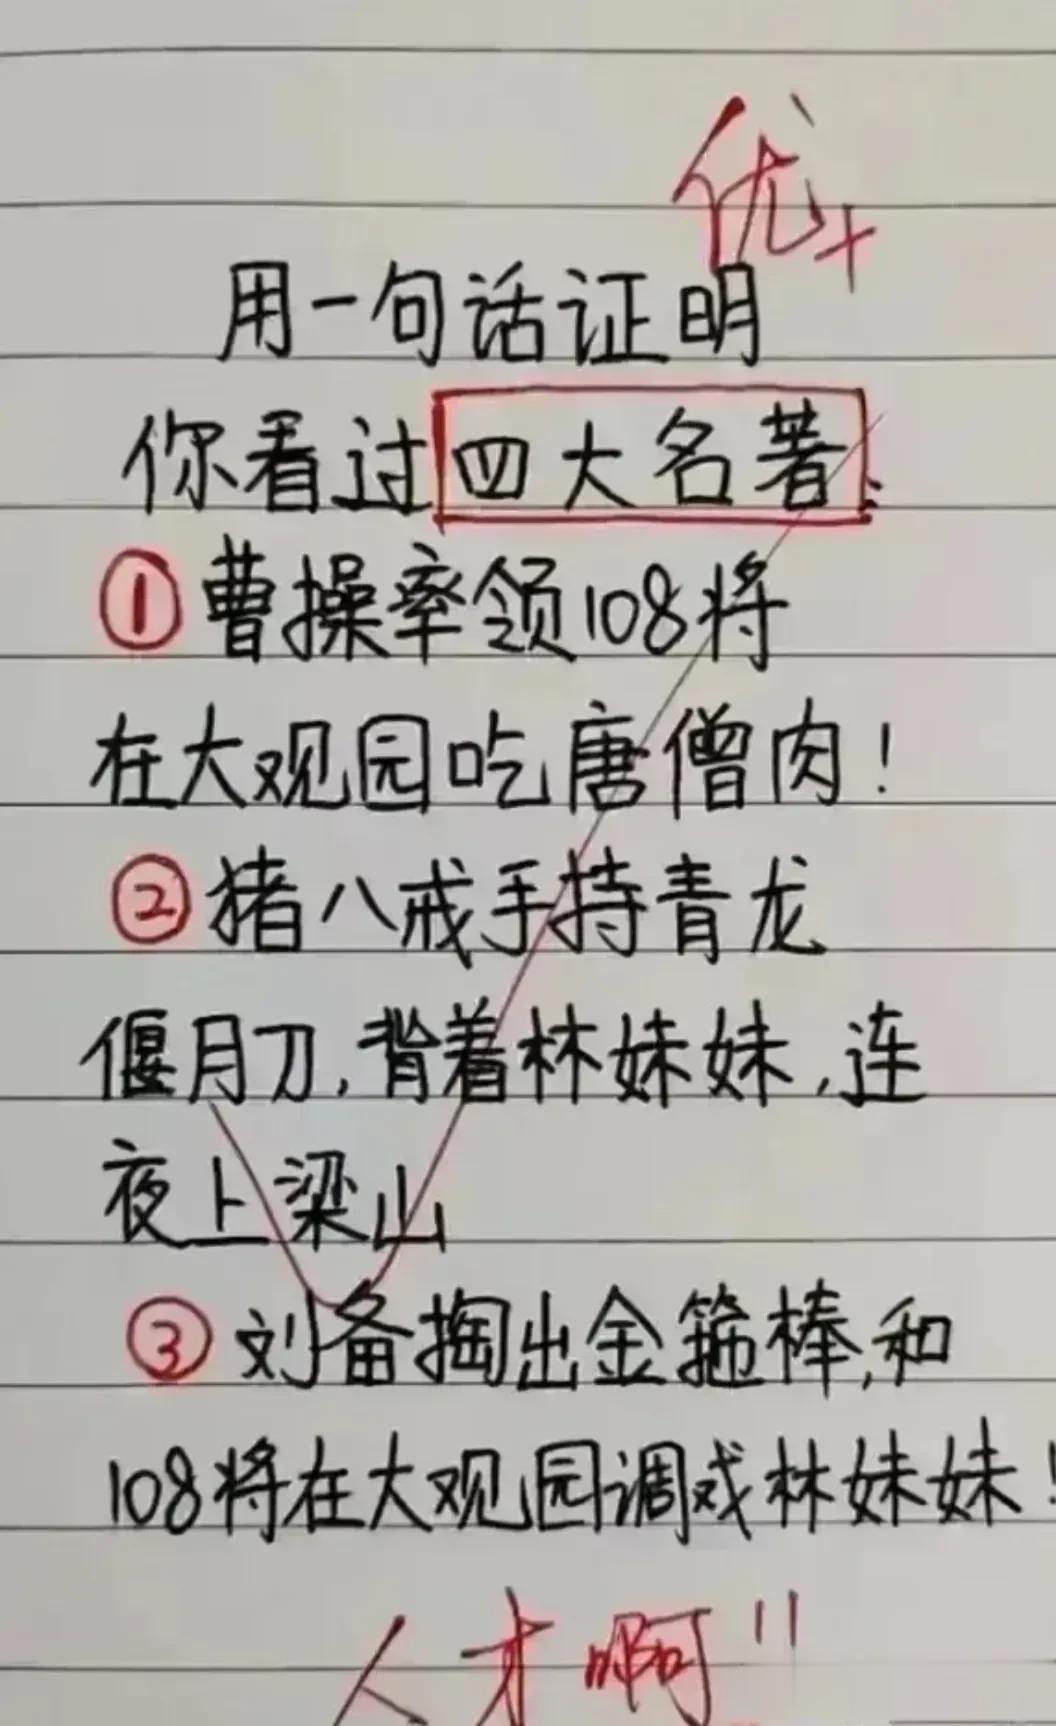 优+
用一句话证明
你看过四大名著:
①曹操率领108将
在大观园吃唐僧肉!
②猪八戒手持青龙
偃月刀,背着林妹妹,连
夜上梁山
③刘备掏出金箍棒,和
108将在大观园调戏林妹妹!
人才啊!!